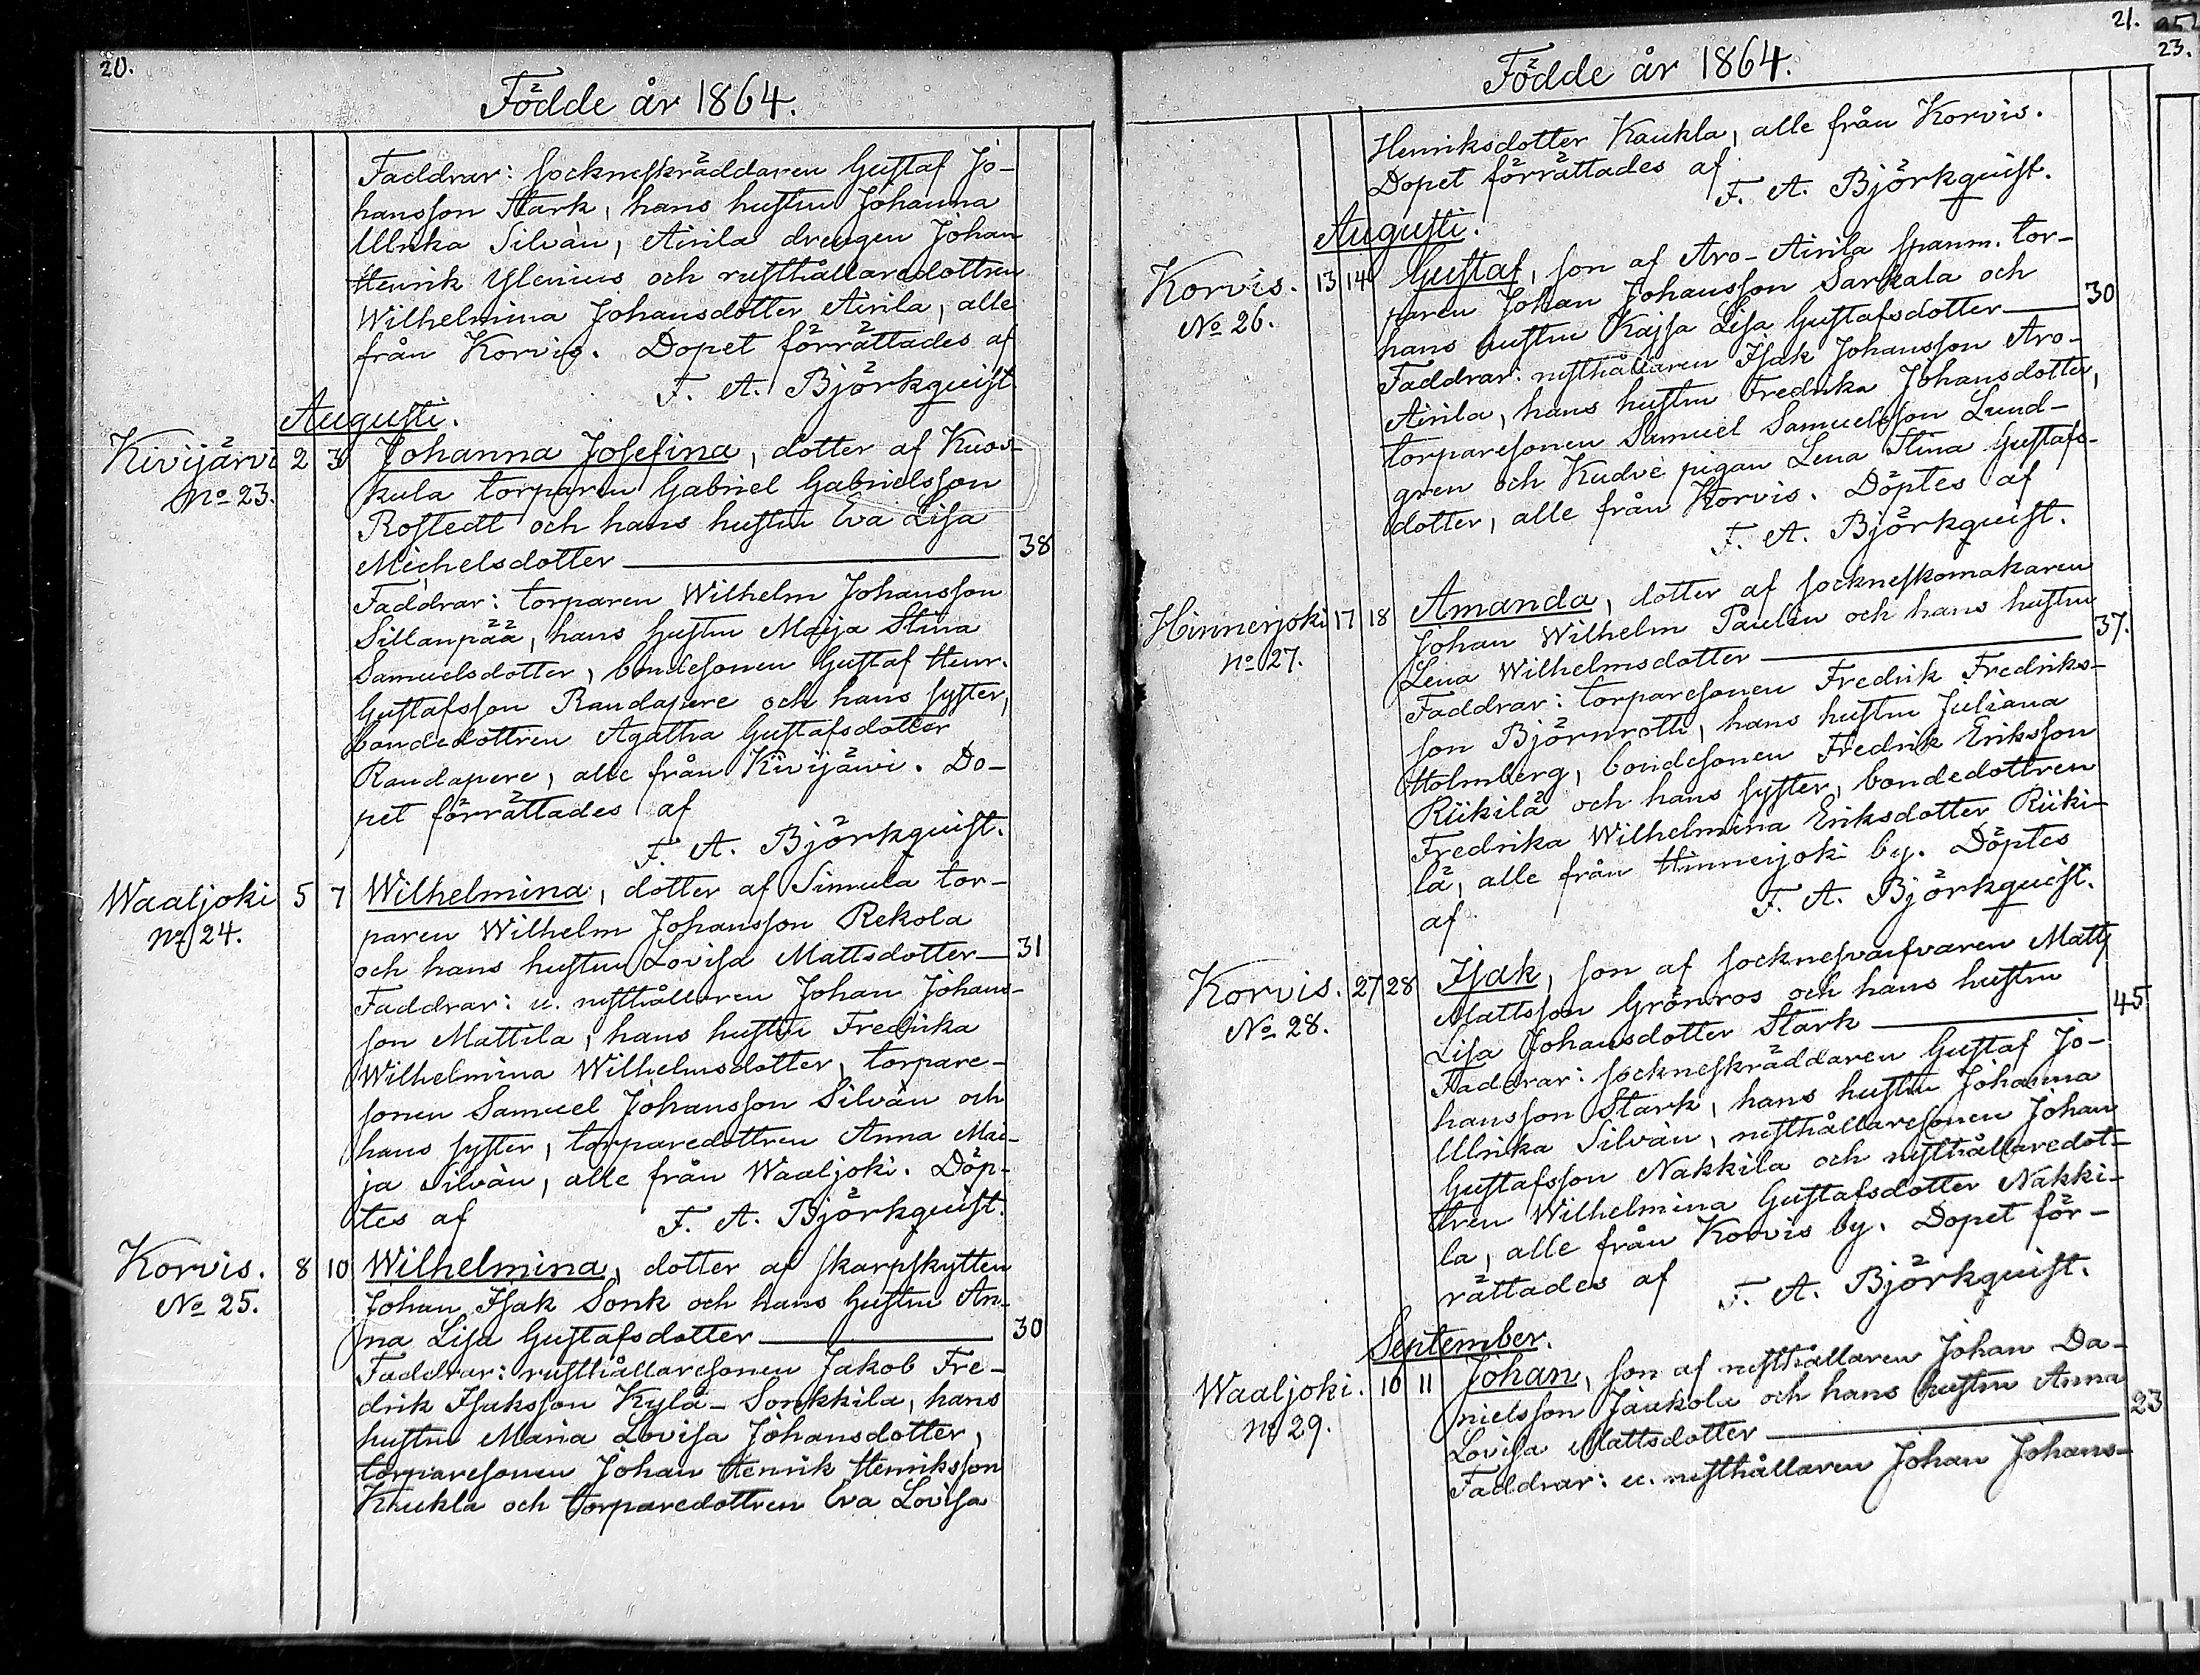 20.
Födde år 1864.
Faddrar: sockneskräddaren Gustaf Jo-
hansson Stark, hans hustru Johanna
Ulrika Silvàn, Airila drengen Johan
Henrik Ylenius och rusthållaredottren
Wilhelmina Johansdotter Airila, alle
från Korvis. Dopet förrättades af
F. A. Björkquist
Augusti.
Kivijärvi 2 3 Johanna Josefina, dotter af Kuos-
No 23. kula torparen Gabriel Gabrielsson
Rostedt och hans hustru Eva Lisa
Michelsdotter 38
Faddrar: torparen Wilhelm Johansson
Sillanpää, hans hustru Maja Stina
Samuelsdotter, bondesonen Gustaf Henr.
Gustafsson Randapere och hans syster,
bondedottren Agatha Gustafsdotter
Randapere, alle från Kivijärvi. Do-
pet förrättades af
F. A. Björkquist.
Waaljoki 5 7 Wilhelmina, dotter af Simula tor-
No 24. paren Wilhelm Johansson Rekola
och hans hustru Lovisa Mattsdotter 31
Faddrar: u. rusthållaren Johan Johans-
son Mattila, hans hustru Fredrika
Wilhelmina Wilhelmsdotter, torpare-
sonen Samuel Johansson Silvàn och
hans syster, torparedottren Anna Mai-
ja Silvàn, alle från Waaljoki. Döp-
tes af F. A. Björkquist.
Korvis. 8 10 Wilhelmina, dotter af skarpskytten
No 25. Johan Isak Sonk och hans hustru An-
na Lisa Gustafsdotter 30
Faddrar: rusthållaresonen Jakob Fre-
drik Isaksson Kylä-Sonkkila, hans
hustru Maria Lovisa Johansdotter,
torparesonen Johan Henrik Henriksson
Kaukla och torparedottren Eva Lovisa
21.
Födde år 1864.
Henriksdotter Kaukla, alle från Korvis.
Dopet förrättades af
F. A. Björkquist.
Augusti.
Korvis. 13 14 Gustaf, son af Aro-Airila spanm. tor-
No 26. paren Johan Johansson Sarkala och
hans hustru Kajsa Lisa Gustafsdotter 30
Faddrar: rusthållaren Isak Johansson Aro-
Airila, hans hustru Fredrika Johansdotter,
torparesonen Samuel Samuelsson Lund-
gren och Kudve pigan Lena Stina Gustafs-
dotter, alle från Korvis. Döptes af
F. A. Björkquist.
Hinnerjoki 17 18 Amanda, dotter af sockneskomakaren
No 27. Johan Wilhelm Paulin och hans hustru
Lena Wilhelmsdotter 37.
Faddrar: torparesonen Fredrik Fredriks-
son Björnroth, hans hustru Juliana
Holmberg, bondesonen Fredrik Eriksson
Riikilä och hans syster, bondedottren
Fredrika Wilhelmina Eriksdotter Riiki-
lä, alle från Hinnerjoki by. Döptes
af F. A. Björkquist.
Korvis. 27 28 Isak, son af socknesvarfvaren Matts
No 28. Mattsson Grönros och hans hustru
Lisa Johansdotter Stark 45
Faddrar: sockneskräddaren Gustaf Jo-
hansson Stark, hans hustru Johanna
Ulrika Silvàn, rusthållaresonen Johan
Gustafsson Nakkila och rusthållaredot-
tren Wilhelmina Gustafsdotter Nakki-
la, alle från Korvis by. Dopet för-
rättades af F. A. Björkquist.
September.
Waaljoki. 10 11 Johan, son af rusthållaren Johan Da-
No 29. nielsson Jaakola och hans hustru Anna
Lovisa Mattsdotter 23
Faddrar: u. rusthållaren Johan Johans-
23.